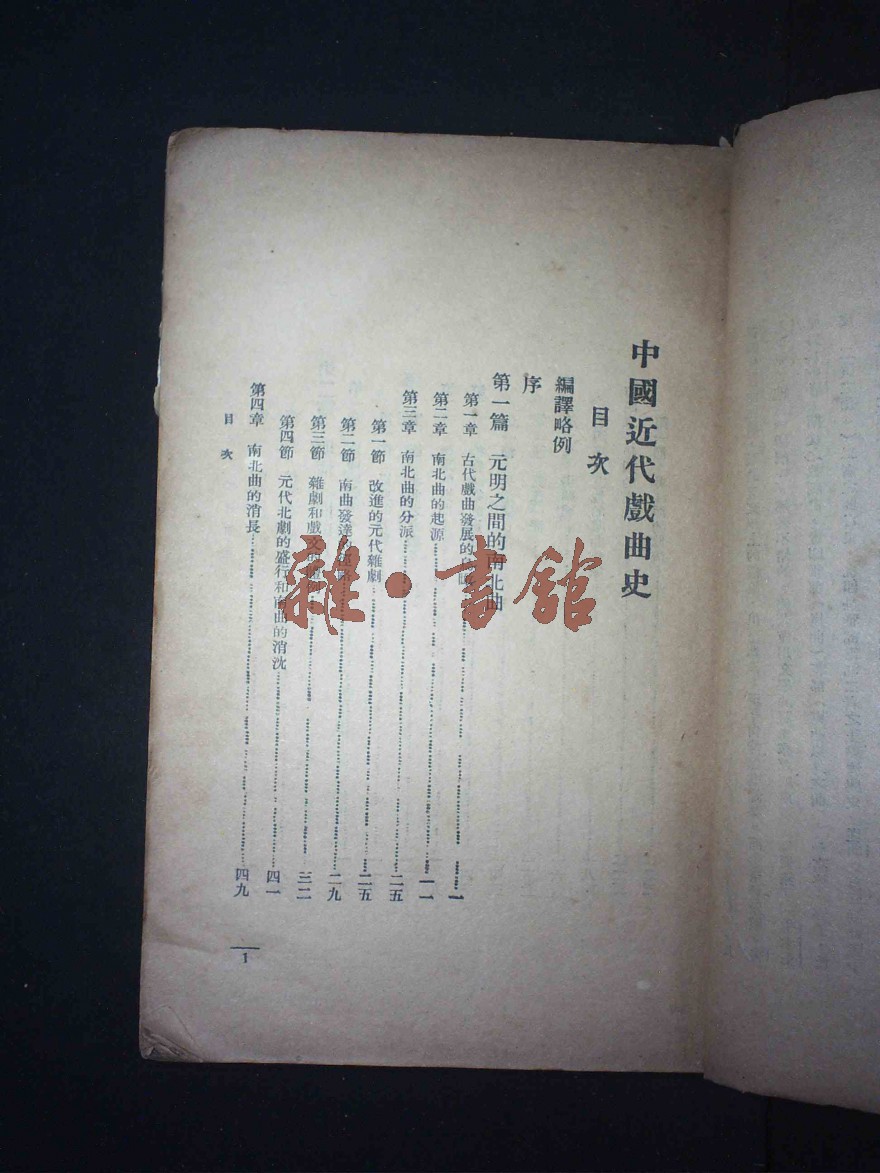 中國近代戲曲史
目次
編譯略例
序
第一篇 元明之間的南北曲
第一章 古代戲曲發展的 一
第二章 南北曲的起源 一一
第三章 南北曲的分派 二五
第一節 改進的元代雜劇 二五
第二節 南曲發達 二九
第三節 雜劇和戲文 三二
第四節 元代北劇的盛行和南曲的消沈 四一
第四章 南北曲的消長 四九
目次
1
雜·書館